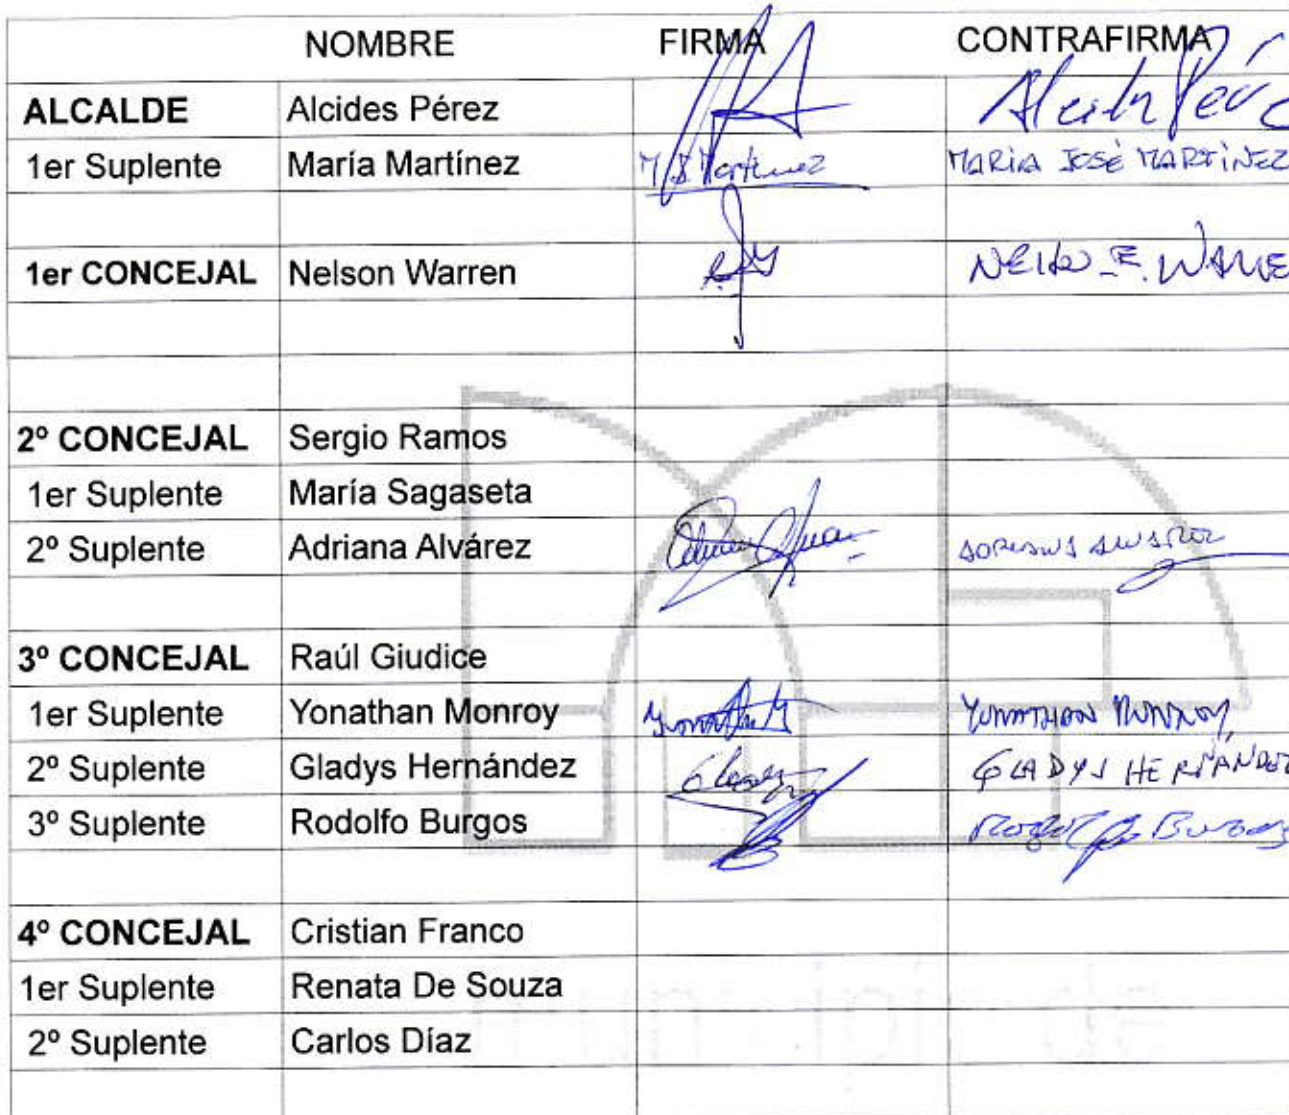 NOMBRE FIRMA CONTRAFIRMA
ALCALDE Alcides Pérez
1er Suplente María Martínez M J Martinez MARIA JOSÉ MARTINEZ
1er CONCEJAL Nelson Warren
2º CONCEJAL Sergio Ramos
1er Suplente María Sagaseta
2º Suplente Adriana Alvárez ADRIANA ALVAREZ
3º CONCEJAL Raúl Giudice
1er Suplente Yonathan Monroy YONATHAN MONROY
2º Suplente Gladys Hernández Gladys GLADYS HERNÁNDEZ
3º Suplente Rodolfo Burgos Rodolfo Burgos
4º CONCEJAL Cristian Franco
1er Suplente Renata De Souza
2º Suplente Carlos Díaz
municipio de